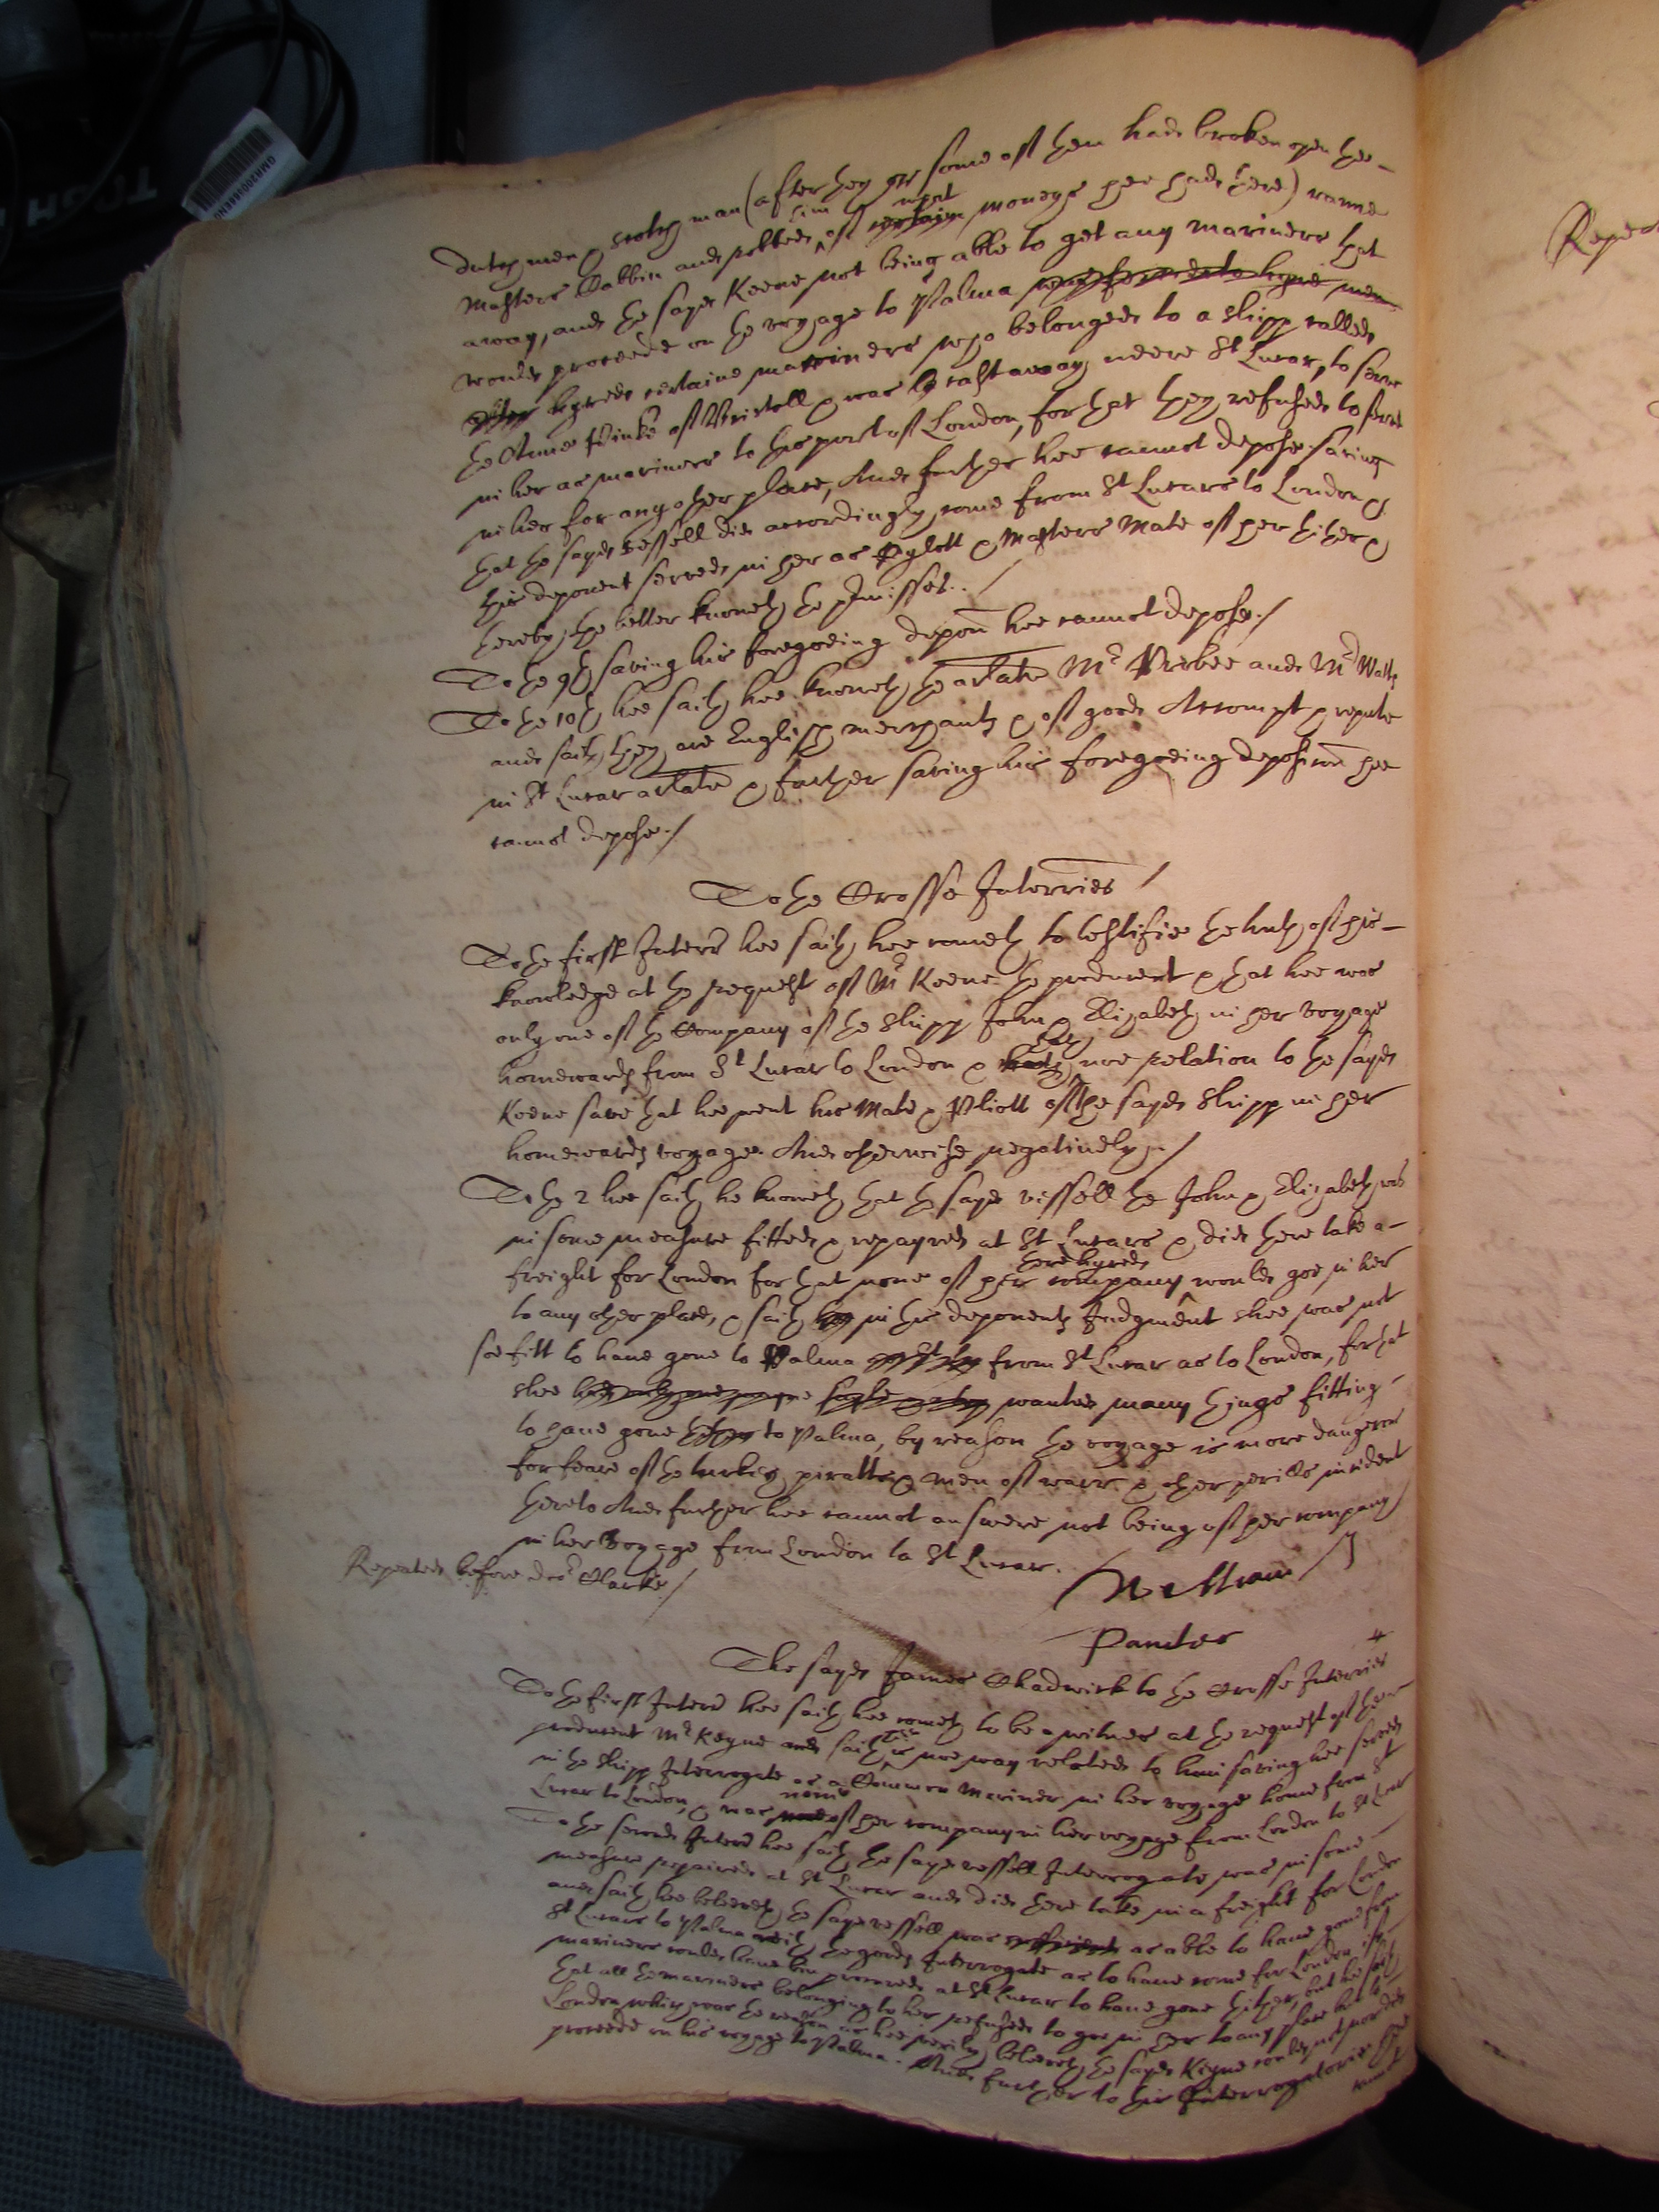 dutch men & scotch man (after they or some of them had broken open the -
Masters Cabbin and robbed him of what moneys hee had there) ranne
away, and the sayd Keene not being able to get any mariners that
would proceede on the voyage to Palma
hyred certaine marriners who belonged to a shipp called
the Anne Pinke of Bristoll & was cast away neere St Lucar, to serve
in her as mariners to this port of London, for that they refused to serve
in her for any other place, And further hee cannot depose saving
that the sayd vessell did accordingly come from St Lucars to London &
this deponent served in her as Pylott & Masters Mate of her hither &
thereby the better knoweth the premisses./
To the 9th saving his foregoeing depon hee cannot depose./
To the 10th hee saith hee knoweth the arlate Mr Virbee and Mr Watts
and saith they are English merchants & of good Accompt & repute
in St Lucar arlate & further saving his foregoeing deposicon hee
cannot depose./
To the Crosse Interries /
To the first Interr hee saith hee cometh to testifie the truth of his -
knowledge at the request of Mr Keene the producent & that hee was
only one of the Company of the shipp John & Elizabeth in her voyage
homewards from St Lucar to London & hath noe relation to the sayd
Keene save that hee went his Mate & Pliott of the sayd shipp in her
homewards voyage. And otherwise negatively./
To the 2 hee saith he knoweth that the sayd vissell the John & Elizabeth was
in some measure fitted & repayred at St Lucars & did there take a -
freight for London for that none of her company there hyred would goe in her
to any other place, & saith in this deponents Judgment shee was not
soe fitt to have gone to Palma from St Lucar as to London, for that
shee wanted many things fitting -
to have gone to Palma, by reason the voyage is more dangerous
for feare of the turkish piratts & men of warr & other perills incident
thereto And further hee cannot answere not being of her company
in her voyage from London to St Lucar.
Repeated before doctor Clarke./
William
Panter
The sayd James Chadwick to the Crosse Interries
To the first Interr hee saith hee cometh to be a witnes at the request of the
producent Mr Keyne and saith hee is noe way related to him saving hee served
in the shipp Interrogate as a Common Mariner in her voyage home from St
Lucar to London, & was none of her company in her voyage from London to St Lucar
To the second Interr hee saith the sayd vessell Interrogate was in some -
measure repaired at St Lucar and did there take in a freight for London
and saith hee beleeveth the sayd vessell was as able to have gone from
St Lucars to Palma with the goods Interrogate as to have come for London if
mariners could have bin procured at St Lucar to have gone thither, but hee saith
that all the mariners belonging to her refused to goe in her to any place but to
London which was the reason as hee verily beleeveth the sayd Keyne could not nor did
proceede on his voyage to Palma. And further to this Interrogatorie hee
cannot